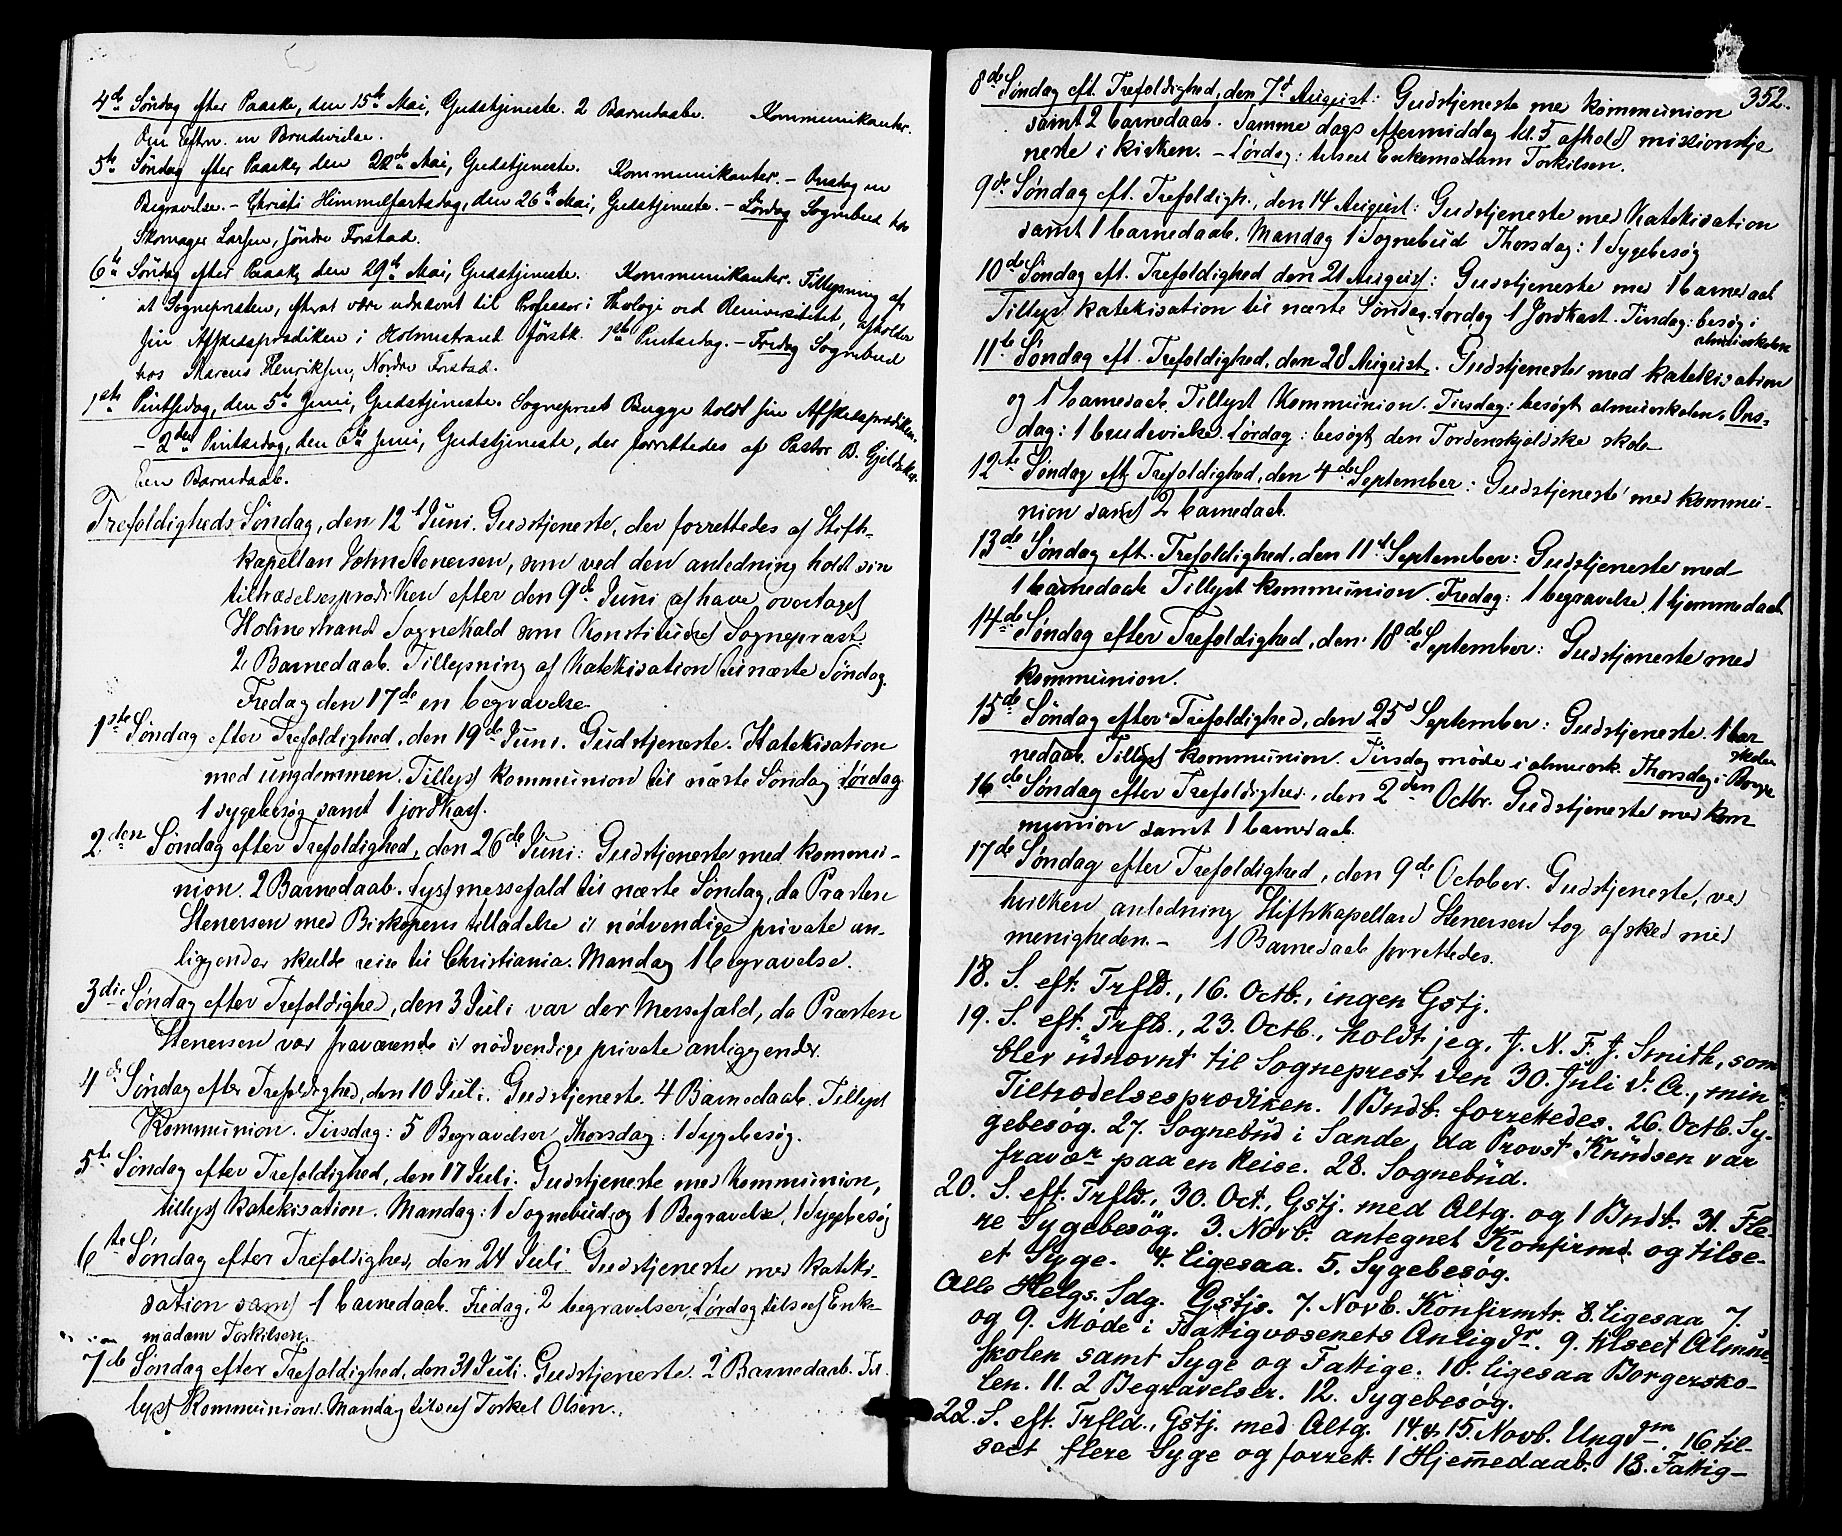 4de Søndag efter Paaske, den 15de Mai, Gudstjeneste. 2 Barnedaabe. Kommunikanter.
Den Eftm. en Brudevielse.
5te Søndag efter Paaske, den 22de Mai, Gudstjeneste. Kommunikanter. – Onsdag en
Begravelse. – Christi Himmelfartsdag, den 26de Mai, Gudstjeneste. – Lördag Sognebud hos
Skomager Larsen, søndre Forstad.
6te Søndag efter Paaske, den 29de Mai, Gudstjeneste. Kommunikanter. Tillysning af
at Sognepresten, efterat være udnævnt til Professor i Theologi ved Universitetet, afholder
sin Afskedsprædiken i Holmestrand förstk. 1ste Pintsedag. – Fredag Sognebud
hos Marcus Henriksen, Nordre Forstad.
1ste Pintsedag, den 5te Juni, Gudstjeneste. Sogneprest Bugge holdt sin Afskedsprædiken.
– 2den Pintsedag, den 6te Juni, Gudstjeneste, der forrettedes af Pastor B. Gjeldaker.
Een Barnedaab.
Trefoldigheds Søndag, den 12te Juni. Gudstjeneste, der forrettedes af Stifts-
kapellan John Stenersen, som ved den anledning holdt sin
tiltrædelsesprædiken efter den 9de Juni at have overtaget
Holmestrand Sognekald som Konstitueret Sognepræst
2 Barnedaab. Tillysning af Katekisation til næste Søndag.
Fredag den 17de en begravelse
1ste Søndag efter Trefoldighed, den 19de Juni. Gudstjeneste. Katekisation
med ungdommen. Tillyst kommunion til næste Søndag Lørdag
1 sygebesøg samt 1 jordkast.
2den Søndag efter Trefoldighed, den 26de Juni: Gudstjeneste med kommu-
nion. 2 Barnedaab. Lyst messefald til næste Søndag, da Præsten
Stenersen med Biskopens tilladelse i nödvendige private an-
liggender skulde reise til Christiania. Mandag 1 begravelse.
3die Søndag efter Trefoldighed, den 3 Juli var der Messefald, da Præsten
Stenersen var fraværende i nödvendige private anliggender.
4de Søndag efter Trefoldighed, den 10 Juli. Gudstjeneste. 4 Barnedaab. Tillyst
Kommunion. Tirsdag: 5 Begravelser Thorsdag: 1 Sygebesøg.
5te Søndag efter Trefoldighed, den 17 Juli: Gudstjeneste med Kommunion,
tillyst katekisation. Mandag: 1 Sognebud og 1 Begravelse, 1 Sygebesøg
6te Søndag efter Trefoldighed, den 24 Juli Gudstjeneste med Kateki-
sation samt 1 barnedaab. Fredag: 2 begravelser, Lørdag tilseet Enke-
madam Torkilsen.
7de Søndag efter Trefoldighed, den 31 Juli. Gudstjeneste. 2 Barnedaab. Til-
lyst Kommunion. Mandag tilseet Torkel Olsen.
352.
8de Søndag eft. Trefoldighed, den 7de August: Gudstjeneste med kommunion
samt 2 barnedaab. Samme dags eftermiddag kl. 5 afholdt missionstje
neste i kirken. – Lørdag: tilseet Enkemadam Torkilsen.
9de Søndag eft. Trefoldigh., den 14 August: Gudstjeneste med Katekisation
samt 1 barnedaab. Mandag 1 Sognebud Thorsdag: 1 Sygebesøg
10de Søndag eft. Trefoldighed den 21 August: Gudstjeneste med 1 barnedaab
Tillyst katekisation til næste Søndag. Lørdag 1 Jordkast. Tirsdag: besøg i
almueskolen
11te Søndag eft. Trefoldighed, den 28 August. Gudstjeneste med katekisation
og 1 barnedaab. Tillyst Kommunion. Tirsdag: besøgt almueskolen. Ons-
dag: 1 brudevielse Lørdag: besøgt den Tordenskjoldske skole
12te Søndag eft. Trefoldighed, den 4de September: Gudstjeneste med kommu-
nion samt 2 barnedaab.
13de Søndag eft. Trefoldighed, den 11te September: Gudstjeneste med
1 barnedaab Tillyst kommunion. Fredag: 1 begravelse, 1 hjemmedaab
14de Søndag efter Trefoldighed, den 18de September: Gudstjeneste med
kommunion.
15de Søndag efter Trefoldighed, den 25de September: Gudstjeneste. 1 bar
nedaab. Tillyst kommunion. Tirsdag møde i almuesk. Thorsdag i Borger
skolen
16de Søndag efter Trefoldighed, den 2den Octbr. Gudstjeneste med kom
munion samt 1 barnedaab.
17de Søndag efter Trefoldighed, den 9de October. Gudstjeneste, ved
hvilken anledning Stiftskapellan Stenersen tog afsked med
menigheden. – 1 Barnedaab forrettedes.
18. S. eft. Trfld., 16. Octb., ingen Gstj.
19. S. eft. Trfld., 23. Octb., holdt jeg, J. N. F. J. Smith, som
blev udnævnt til Sogneprest den 30. Juli d. A., min
Tiltrædelsesprædiken. 1 Bndb. forrettedes. 26. Octb. Sy-
gebesøg. 27. Sognebud i Sande, da Provst Knudsen var
fravær paa en Reise. 28. Sognebud.
20. S. eft. Trfld., 30. Oct., Gstj. med Altg. og 1 Bndb. 31. Fle-
re Sygebesøg. 3. Novb. antegnet Konfirmd. og tilse-
et Syge. 4. Ligesaa. 5. Sygebesøg.
Alle Helgs. Sdg. Gstjs. 7. Novb. Konfirmtr. 8. Ligesaa 7.
og 9. Møde i Fattigvæsenets Anligdr. 9. tilseet Almue-
skolen samt Syge og Fattige. 10. ligesaa Borgersko-
len. 11. 2 Begravelser. 12. Sygebesøg.
22. S. eft. Trfld., Gstj. med Altg. 14. & 15. Novb. Ungdm. 16 til-
seet flere Syge og forrett. 1 Hjemmedaab. 18. Fattig-